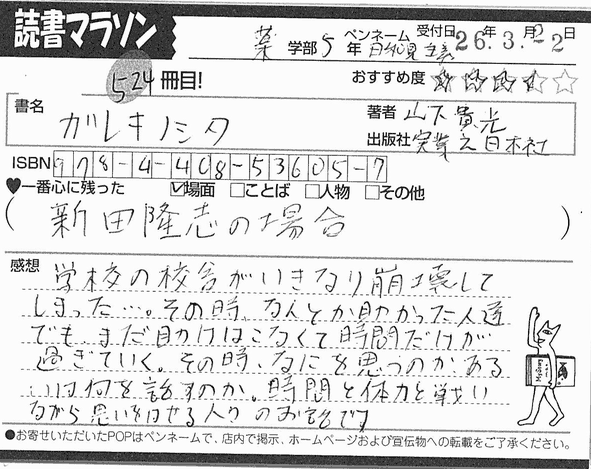 読書マラソン
薬 学部 5 年 ペンネーム 受付日 26年.3.月22日
524冊目! おすすめ度 ★★★☆☆
書名 ガレキノシタ
著者 山下貴光
出版社 実業之日本社
ISBN 978-4-408-53605-7
♥一番心に残った ☑場面 □ことば □人物 □その他
(新田隆志の場合)
感想 学校の校舎がいきなり崩壊して
しまった…。その時、なんとか助かった人達
でも、まだ助けはこなくて時間だけが
過ぎていく。その時、なにを思うのか、ある
いは何を話すのか。時間と体力と戦い
ながら思いをはせる人々のお話です
●お寄せいただいたPOPはペンネームで、店内で掲示、ホームページおよび宣伝物への転載をご了承ください。